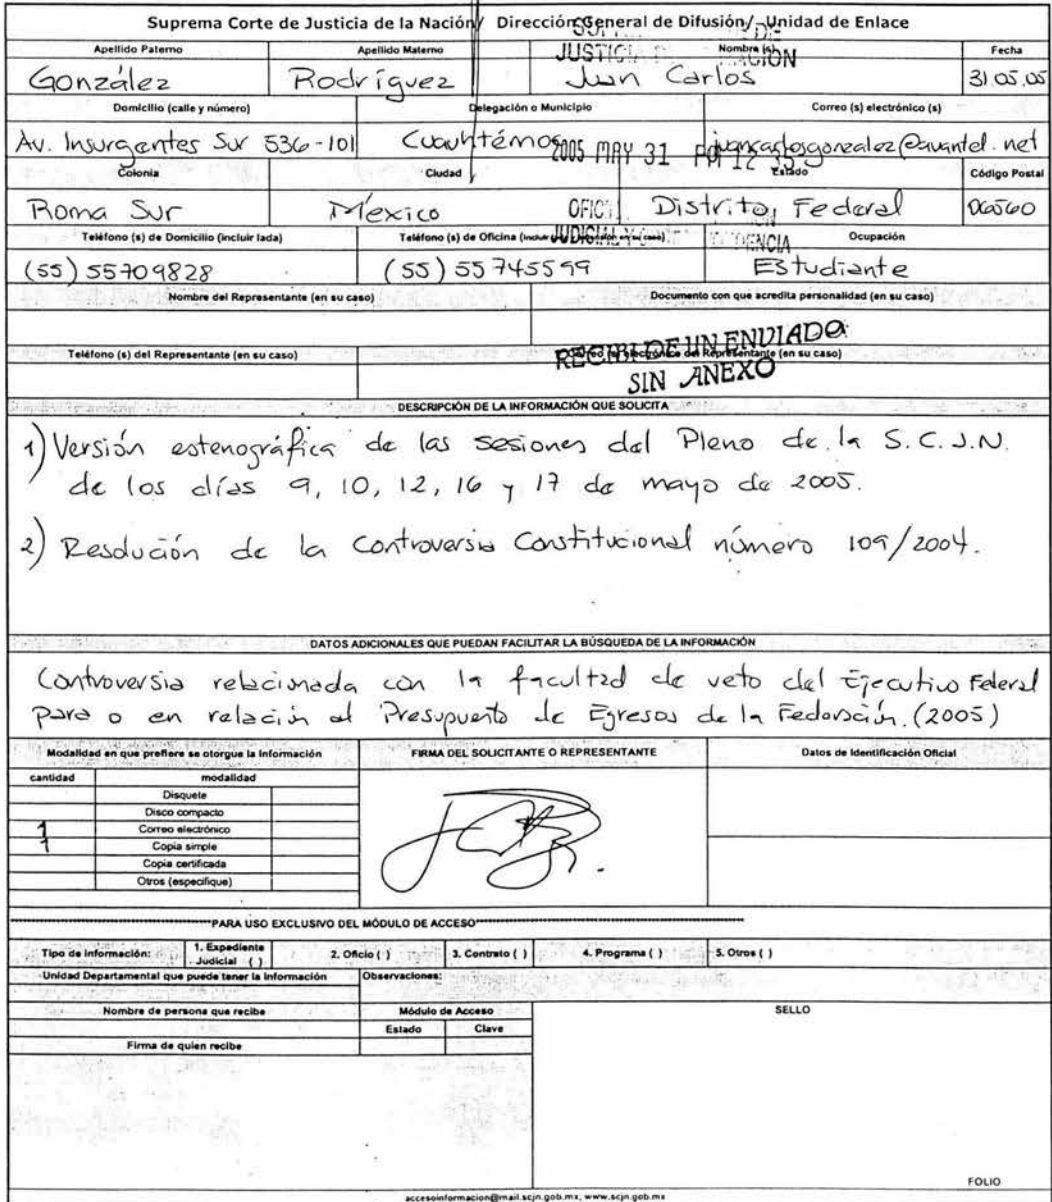 Suprema Corte de Justicia de la Nación/ Dirección General de Difusión/ Unidad de Enlace
Apellido Paterno Apellido Materno Nombre (s) Fecha
JUSTICIA NACIÓN
González Rodríguez Juan Carlos 31.05.05
Domicilio (calle y número) Delegación o Municipio Correo (s) electrónico (s)
Av. Insurgentes Sur 536-101 Cuauhtémoc juancarlosgonzalez@avantel.net
2005 MAY 31 PM 12
Colonia Ciudad Estado Código Postal
Roma Sur México Distrito Federal 06560
Teléfono (s) de Domicilio (incluir lada) Teléfono (s) de Oficina (incluir en su caso) Ocupación
JUDICIAL Y
(55) 55709828 (55) 55745599 Estudiante
Nombre del Representante (en su caso) Documento con que acredita personalidad (en su caso)
RECIBI DE UN ENVIADO
Teléfono (s) del Representante (en su caso) Correo (s) electrónico del Representante (en su caso)
SIN ANEXO
DESCRIPCIÓN DE LA INFORMACIÓN QUE SOLICITA
1) Versión estenográfica de las sesiones del Pleno de la S.C.J.N.
de los días 9, 10, 12, 16 y 17 de mayo de 2005.
2) Resolución de la Controversia Constitucional número 109/2004.
DATOS ADICIONALES QUE PUEDAN FACILITAR LA BÚSQUEDA DE LA INFORMACIÓN
Controversia relacionada con la facultad de veto del Ejecutivo Federal
para o en relación al Presupuesto de Egresos de la Federación. (2005)
Modalidad en que prefiere se otorgue la información FIRMA DEL SOLICITANTE O REPRESENTANTE Datos de Identificación Oficial
cantidad modalidad
Disquete
Disco compacto
1 Correo electrónico
1 Copia simple
Copia certificada
Otros (especifique)
PARA USO EXCLUSIVO DEL MÓDULO DE ACCESO
Tipo de información: 1. Expediente Judicial ( ) 2. Oficio ( ) 3. Contrato ( ) 4. Programa ( ) 5. Otros ( )
Unidad Departamental que puede tener la información Observaciones:
Nombre de persona que recibe Módulo de Acceso SELLO
Estado Clave
Firma de quien recibe
FOLIO
accesoinformacion@mail.scjn.gob.mx, www.scjn.gob.mx